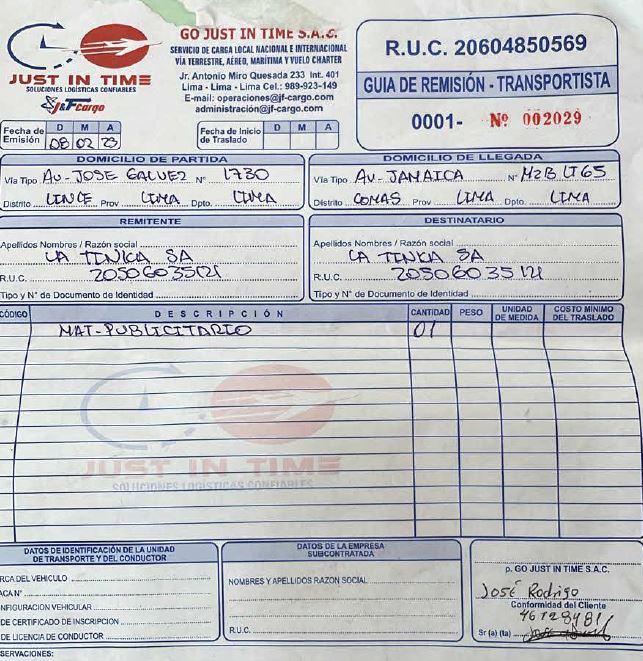 JUST IN TIME
SOLUCIONES LOGÍSTICAS CONFIABLES
J&F Cargo
GO JUST IN TIME S.A.C.
SERVICIO DE CARGA LOCAL NACIONAL E INTERNACIONAL
VÍA TERRESTRE, AÉREO, MARÍTIMA Y VUELO CHARTER
Jr. Antonio Miro Quesada 233 Int. 401
Lima - Lima - Lima Cel.: 989-923-149
E-mail: operaciones@jf-cargo.com
administración@jf-cargo.com
R.U.C. 20604850569
GUIA DE REMISIÓN - TRANSPORTISTA
0001- Nº 002029
Fecha de Emisión D M A
08 02 23
Fecha de Inicio de Traslado D M A
DOMICILIO DE PARTIDA
Vía Tipo AV-JOSE GALVEZ N° 1730
Distrito LINCE Prov LIMA Dpto. LIMA
DOMICILIO DE LLEGADA
Vía Tipo AV-JAMAICA N° MZB LT65
Distrito COMAS Prov. LIMA Dpto. LIMA
REMITENTE
Apellidos Nombres / Razón social
LA TINKA SA
R.U.C. 20506035121
Tipo y N° de Documento de Identidad
DESTINATARIO
Apellidos Nombres / Razón social
LA TINKA SA
R.U.C. 20506035121
Tipo y N° de Documento de Identidad
CÓDIGO DESCRIPCIÓN CANTIDAD PESO UNIDAD DE MEDIDA COSTO MÍNIMO DEL TRASLADO
MAT-PUBLICITARIO 01
JUST IN TIME
SOLUCIONES LOGÍSTICAS CONFIABLES
DATOS DE IDENTIFICACIÓN DE LA UNIDAD
DE TRANSPORTE Y DEL CONDUCTOR
RCA DEL VEHICULO
ACA N°
NFIGURACION VEHICULAR
DE CERTIFICADO DE INSCRIPCION
DE LICENCIA DE CONDUCTOR
DATOS DE LA EMPRESA
SUBCONTRATADA
NOMBRES Y APELLIDOS RAZON SOCIAL
R.U.C.
p. GO JUST IN TIME S.A.C.
José Rodrigo
Conformidad del Cliente
46128481
Sr (a) (ta)
SERVACIONES: